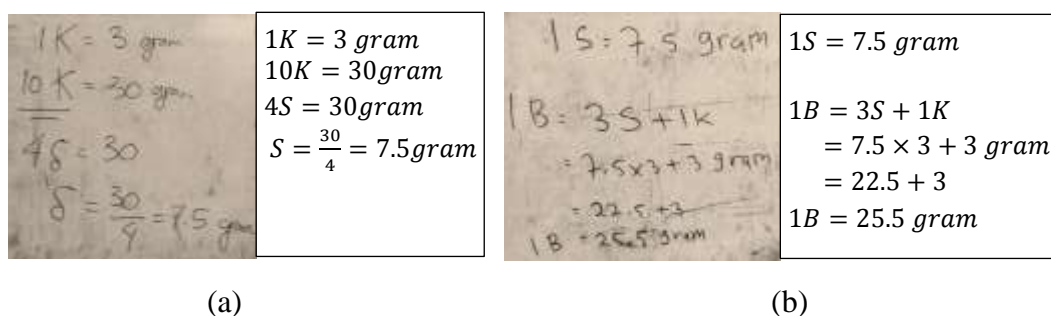 1K = 3 gram
10K = 30 gram
4S = 30
S = 30/4 = 7.5 gram
1K = 3 gram
10K = 30gram
4S = 30gram
S = 30/4 = 7.5gram
(a)
1 S = 7.5 gram
1 B = 3S + 1K
= 7.5 × 3 + 3 gram
= 22.5 + 3
1 B = 25.5 gram
1S = 7.5 gram
1B = 3S + 1K
= 7.5 × 3 + 3 gram
= 22.5 + 3
1B = 25.5 gram
(b)